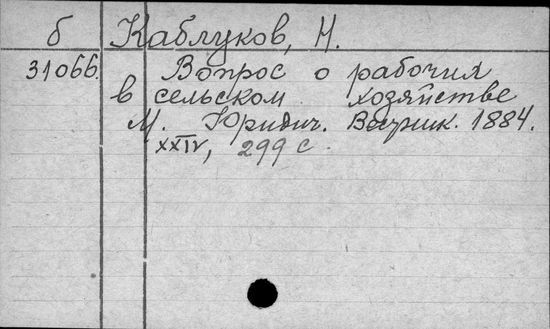 б Каблуков, Н.
31066. Вопрос о рабочих
в сельском хозяйстве
М. Юридич. Вестник. 1884.
XXIV, 299 с.